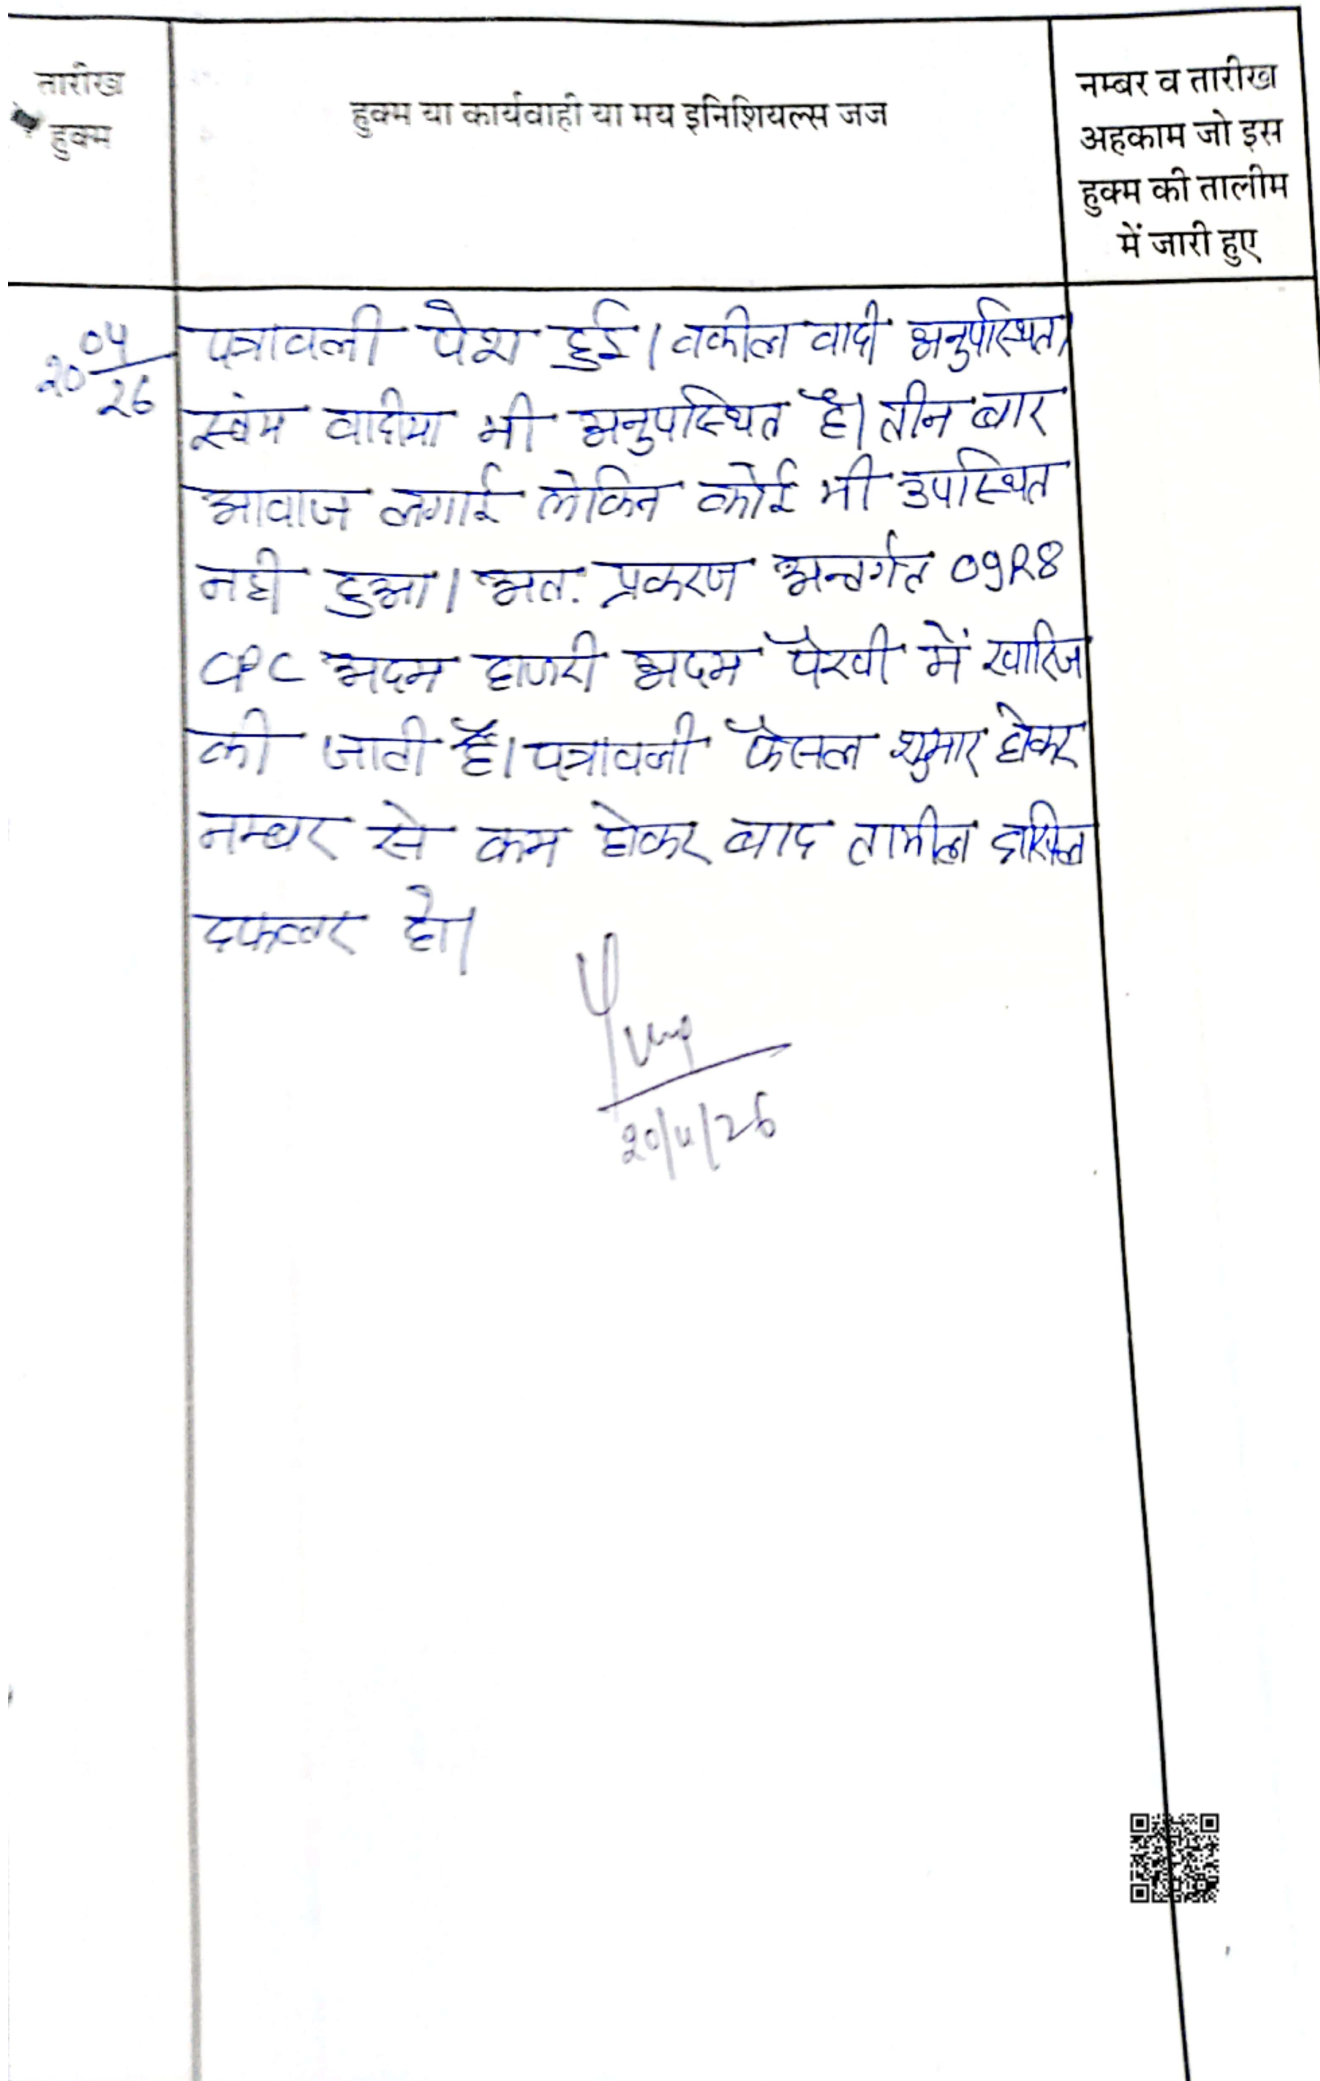 तारीख
हुक्म
हुक्म या कार्यवाही या मय इनिशियल्स जज
नम्बर व तारीख
अहकाम जो इस
हुक्म की तालीम
में जारी हुए
20 04/26
पत्रावली पेश हुई। वकील वादी अनुपस्थित।
स्वंम वादीया भी अनुपस्थित है। तीन बार
आवाज लगाई लेकिन कोई भी उपस्थित
नही हुआ। अत. प्रकरण अन्तर्गत O9R8
CPC अदम हाजरी अदम पैरवी में खारिज
की जाती है। पत्रावली फैसल शुमार होकर
नम्बर से कम होकर बाद तामील दाखिल
दफ्तर हो।
20/4/26